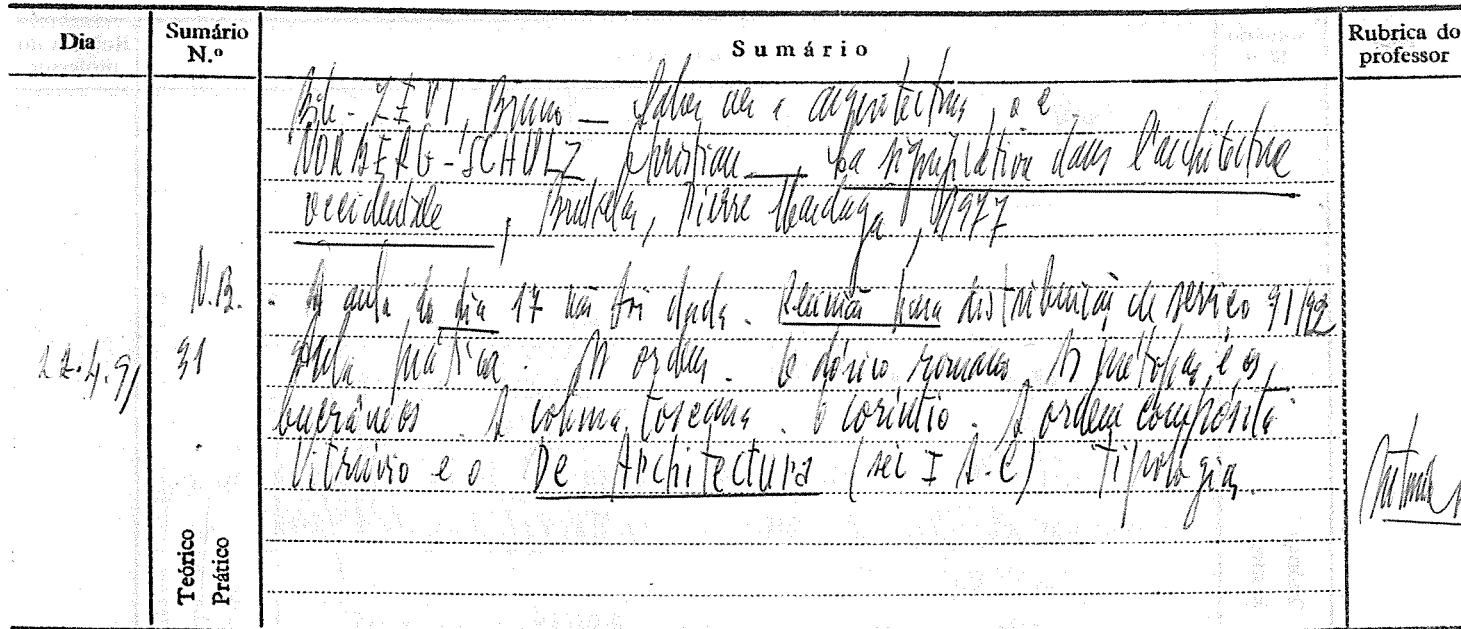 Dia
Sumário N.º
Sumário
Rubrica do professor
Bib. - ZEVI, Bruno — Saber ver a arquitectura, o.c
NORBERG-SCHULZ, Christian — La signification dans l'architecture
occidentale, Bruxelas, Pierre Mardaga, 1977
N.B. . A aula do dia 17 não foi dada. Reunião para distribuição de serviço 91/92
22.4.91 31 Aula prática. As ordens. O dórico romano. As métopas e os
bucrâneos. A coluna toscana. O coríntio. A ordem compósita
Vitrúvio e o De Architectura (séc I A.C) Tipologias.
Teórico
Prático